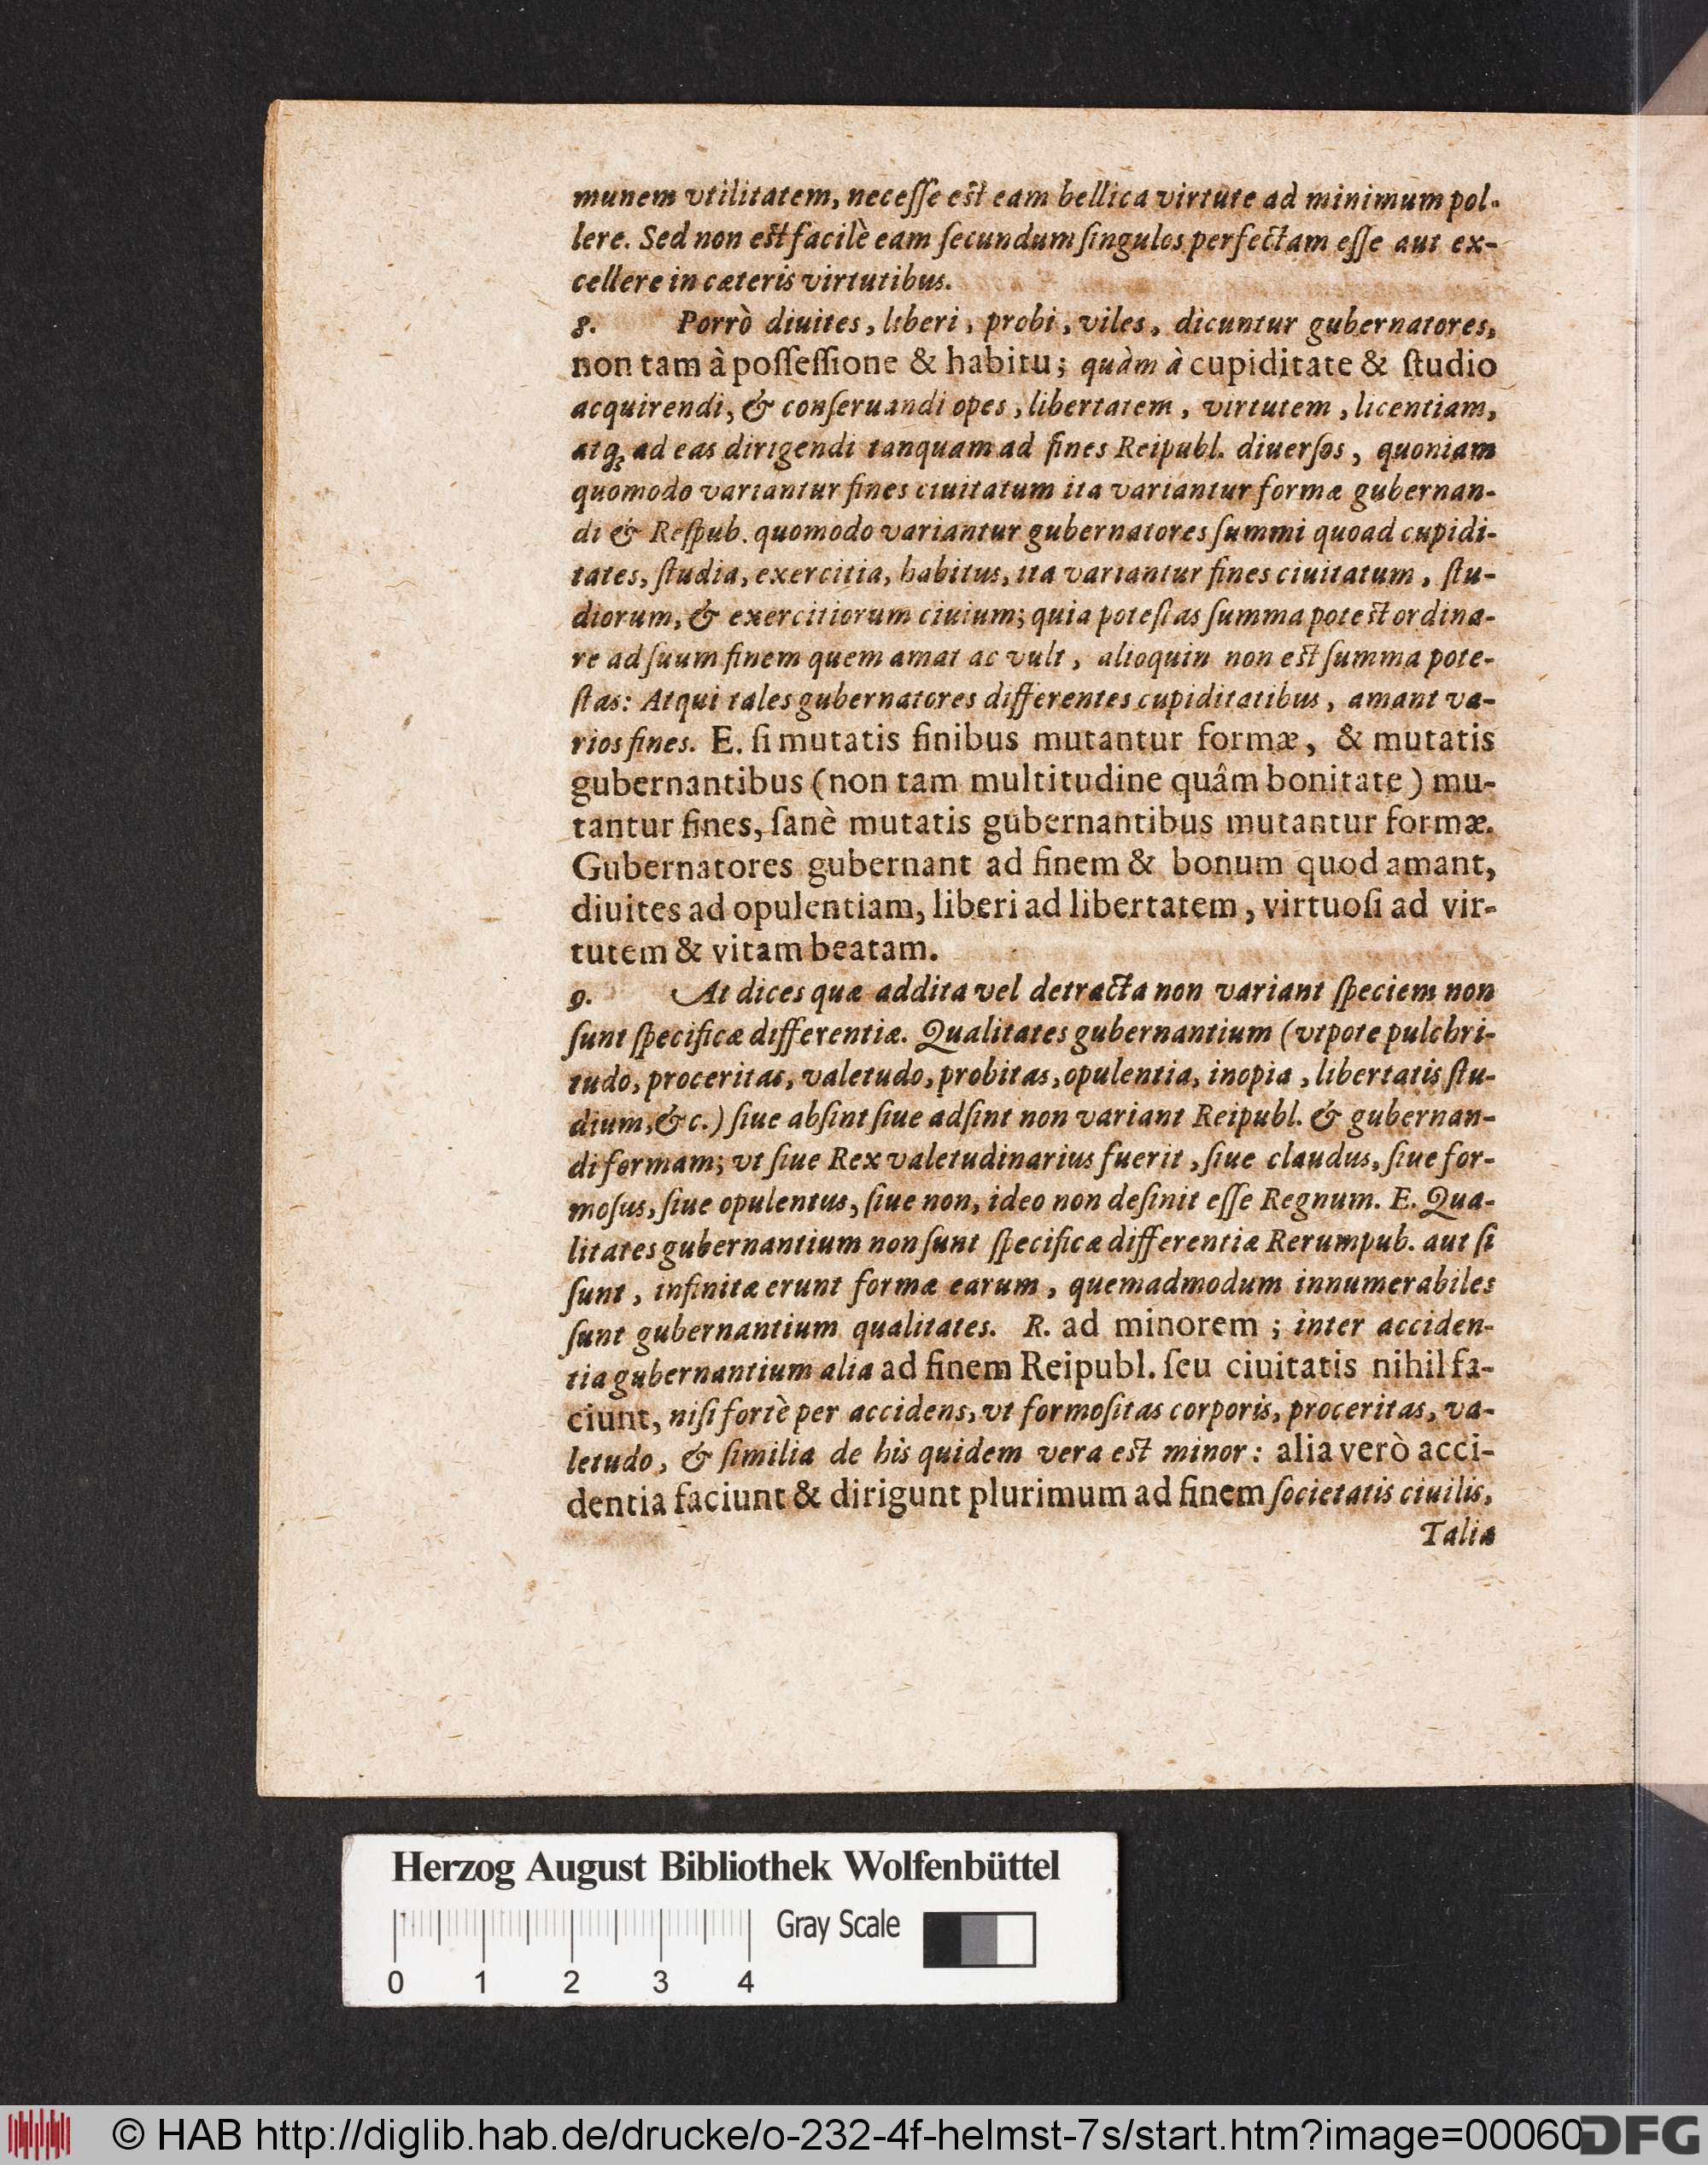 munem vtilitatem, neceſſe eſt eam bellica virtute ad minimum pol-
lere. Sed non eſt facilè eam ſecundum ſingulos perfectam eſſe aut ex-
cellere in cæteris virtutibus.
8. Porrò diuites, liberi, probi, viles, dicuntur gubernatores,
non tam à poſſeſſione & habitu; quàm à cupiditate & ſtudio
acquirendi, & conſeruandi opes, libertatem, virtutem, licentiam,
atq; ad eas dirigendi tanquam ad fines Reipubl. diuerſos, quoniam
quomodo variantur fines ciuitatum ita variantur formæ gubernan-
di & Reſpub. quomodo variantur gubernatores ſummi quoad cupidi-
tates, ſtudia, exercitia, habitus, ita variantur fines ciuitatum, ſtu-
diorum, & exercitiorum ciuium; quia poteſtas ſumma poteſt ordina-
re ad ſuum finem quem amat ac vult, alioquin non eſt ſumma pote-
ſtas: Atqui tales gubernatores differentes cupiditatibus, amant va-
rios fines. E. ſi mutatis finibus mutantur formæ, & mutatis
gubernantibus (non tam multitudine quâm bonitate) mu-
tantur fines, ſanè mutatis gubernantibus mutantur formæ.
Gubernatores gubernant ad finem & bonum quod amant,
diuites ad opulentiam, liberi ad libertatem, virtuoſi ad vir-
tutem & vitam beatam.
9. At dices quæ addita vel detracta non variant ſpeciem non
ſunt ſpecificæ differentiæ. Qualitates gubernantium (vtpote pulchri-
tudo, proceritas, valetudo, probitas, opulentia, inopia, libertatis ſtu-
dium, &c.) ſiue abſint ſiue adſint non variant Reipubl. & gubernan-
di formam; vt ſiue Rex valetudinarius fuerit, ſiue claudus, ſiue for-
moſus, ſiue opulentus, ſiue non, ideo non deſinit eſſe Regnum. E. Qua-
litates gubernantium non ſunt ſpecificæ differentiæ Rerumpub. aut ſi
ſunt, infinitæ erunt formæ earum, quemadmodum innumerabiles
ſunt gubernantium qualitates. R. ad minorem; inter acciden-
tia gubernantium alia ad finem Reipubl. ſeu ciuitatis nihil fa-
ciunt, niſi fortè per accidens, vt formoſitas corporis, proceritas, va-
letudo, & ſimilia de his quidem vera eſt minor: alia verò acci-
dentia faciunt & dirigunt plurimum ad finem ſocietatis ciuilis,
Talia
Herzog August Bibliothek Wolfenbüttel
Gray Scale
0 1 2 3 4
© HAB http://diglib.hab.de/drucke/o-232-4f-helmst-7s/start.htm?image=00060
DFG